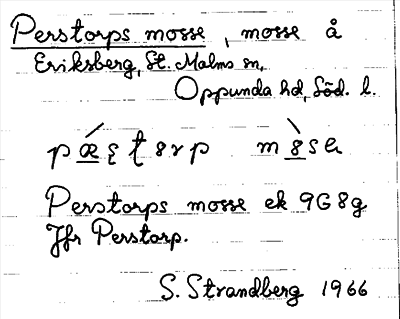 Perstorps mosse, mosse å
Eriksberg, St. Malms sn,
Oppunda hd, Söd. l.
Perstorps mosse ek 9G8g
Jfr Perstorp.
S. Strandberg 1966